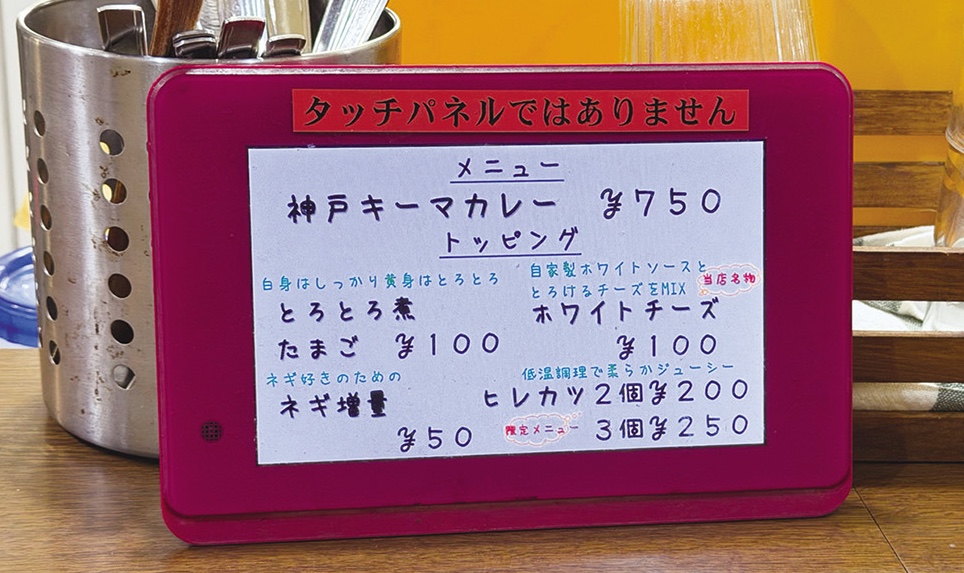 タッチパネルではありません
メニュー
神戸キーマカレー ¥750
トッピング
白身はしっかり黄身はとろとろ
とろとろ煮
たまご ¥100
ネギ好きのための
ネギ増量
¥50
自家製ホワイトソースと
とろけるチーズをMIX
当店名物
ホワイトチーズ
¥100
低温調理で柔らかジューシー
ヒレカツ2個¥200
限定メニュー 3個¥250